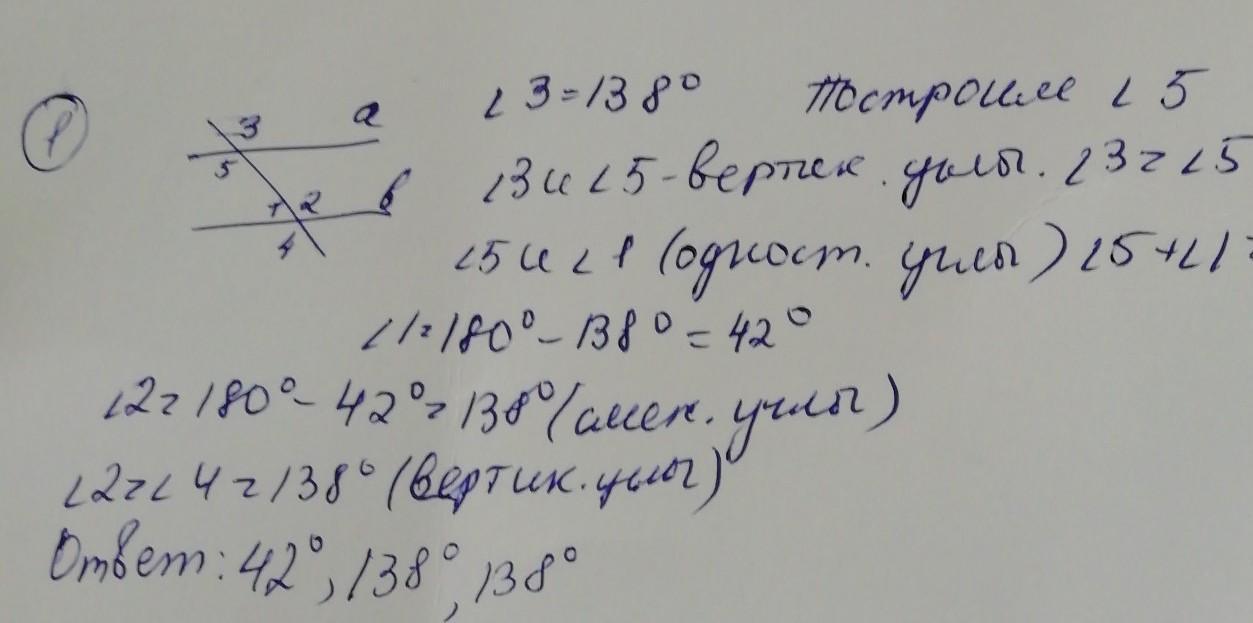 1
3 a
5
1 2 b
4
∠3=138° Построим ∠5
∠3 и ∠5 - вертик. углы. ∠3=∠5
∠5 и ∠1 (одност. углы) ∠5+∠1=
∠1=180°-138°=42°
∠2=180°-42°=138° (смеж. углы)
∠2=∠4=138° (вертик. углы)
Ответ: 42°, 138°, 138°